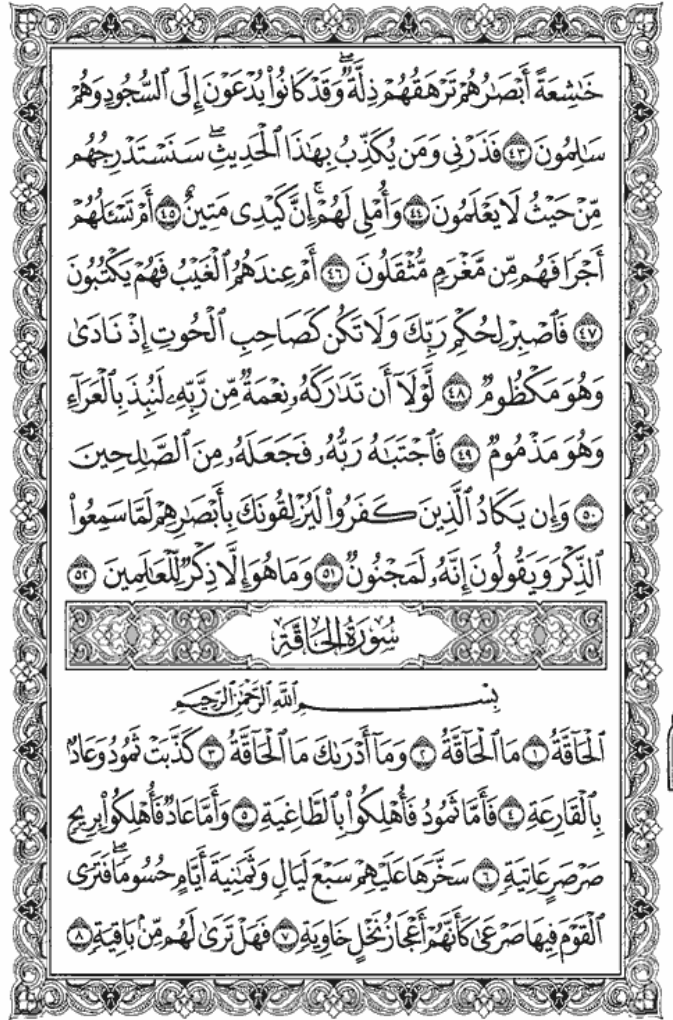 خَٰشِعَةً أَبْصَٰرُهُمْ تَرْهَقُهُمْ ذِلَّةٌۖ وَقَدْ كَانُوا۟ يُدْعَوْنَ إِلَى ٱلسُّجُودِ وَهُمْ
سَٰلِمُونَ ٤٣ فَذَرْنِى وَمَن يُكَذِّبُ بِهَٰذَا ٱلْحَدِيثِۖ سَنَسْتَدْرِجُهُم
مِّنْ حَيْثُ لَا يَعْلَمُونَ ٤٤ وَأُمْلِى لَهُمْۚ إِنَّ كَيْدِى مَتِينٌ ٤٥ أَمْ تَسْـَٔلُهُمْ
أَجْرًا فَهُم مِّن مَّغْرَمٍ مُّثْقَلُونَ ٤٦ أَمْ عِندَهُمُ ٱلْغَيْبُ فَهُمْ يَكْتُبُونَ
٤٧ فَٱصْبِرْ لِحُكْمِ رَبِّكَ وَلَا تَكُن كَصَاحِبِ ٱلْحُوتِ إِذْ نَادَىٰ
وَهُوَ مَكْظُومٌ ٤٨ لَّوْلَآ أَن تَدَٰرَكَهُۥ نِعْمَةٌ مِّن رَّبِّهِۦ لَنُبِذَ بِٱلْعَرَآءِ
وَهُوَ مَذْمُومٌ ٤٩ فَٱجْتَبَٰهُ رَبُّهُۥ فَجَعَلَهُۥ مِنَ ٱلصَّٰلِحِينَ
٥٠ وَإِن يَكَادُ ٱلَّذِينَ كَفَرُوا۟ لَيُزْلِقُونَكَ بِأَبْصَٰرِهِمْ لَمَّا سَمِعُوا۟
ٱلذِّكْرَ وَيَقُولُونَ إِنَّهُۥ لَمَجْنُونٌ ٥١ وَمَا هُوَ إِلَّا ذِكْرٌ لِّلْعَٰلَمِينَ ٥٢
سُورَةُ الحَاقَّةِ
بِسْمِ ٱللَّهِ ٱلرَّحْمَٰنِ ٱلرَّحِيمِ
ٱلْحَآقَّةُ ١ مَا ٱلْحَآقَّةُ ٢ وَمَآ أَدْرَىٰكَ مَا ٱلْحَآقَّةُ ٣ كَذَّبَتْ ثَمُودُ وَعَادٌۢ
بِٱلْقَارِعَةِ ٤ فَأَمَّا ثَمُودُ فَأُهْلِكُوا۟ بِٱلطَّاغِيَةِ ٥ وَأَمَّا عَادٌ فَأُهْلِكُوا۟ بِرِيحٍ
صَرْصَرٍ عَاتِيَةٍ ٦ سَخَّرَهَا عَلَيْهِمْ سَبْعَ لَيَالٍ وَثَمَٰنِيَةَ أَيَّامٍ حُسُومًاۖ فَتَرَى
ٱلْقَوْمَ فِيهَا صَرْعَىٰ كَأَنَّهُمْ أَعْجَازُ نَخْلٍ خَاوِيَةٍ ٧ فَهَلْ تَرَىٰ لَهُم مِّنۢ بَاقِيَةٍ ٨